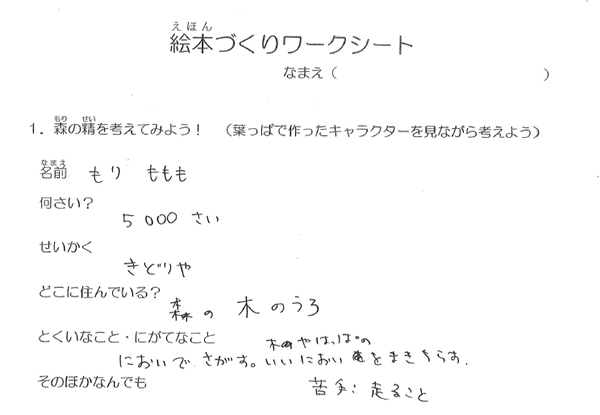 えほん
絵本づくりワークシート
なまえ（　　　　　　　　　　）
もり　せい
1．森の精を考えてみよう！　（葉っぱで作ったキャラクターを見ながら考えよう）
なまえ
名前　もり　ももも
何さい？
5000 さい
せいかく
きどりや
どこに住んでいる？
森の 木のうろ
とくいなこと・にがてなこと
木やはっぱの
においで さがす。いいにおいをまきちらす.
そのほかなんでも
苦手：走ること